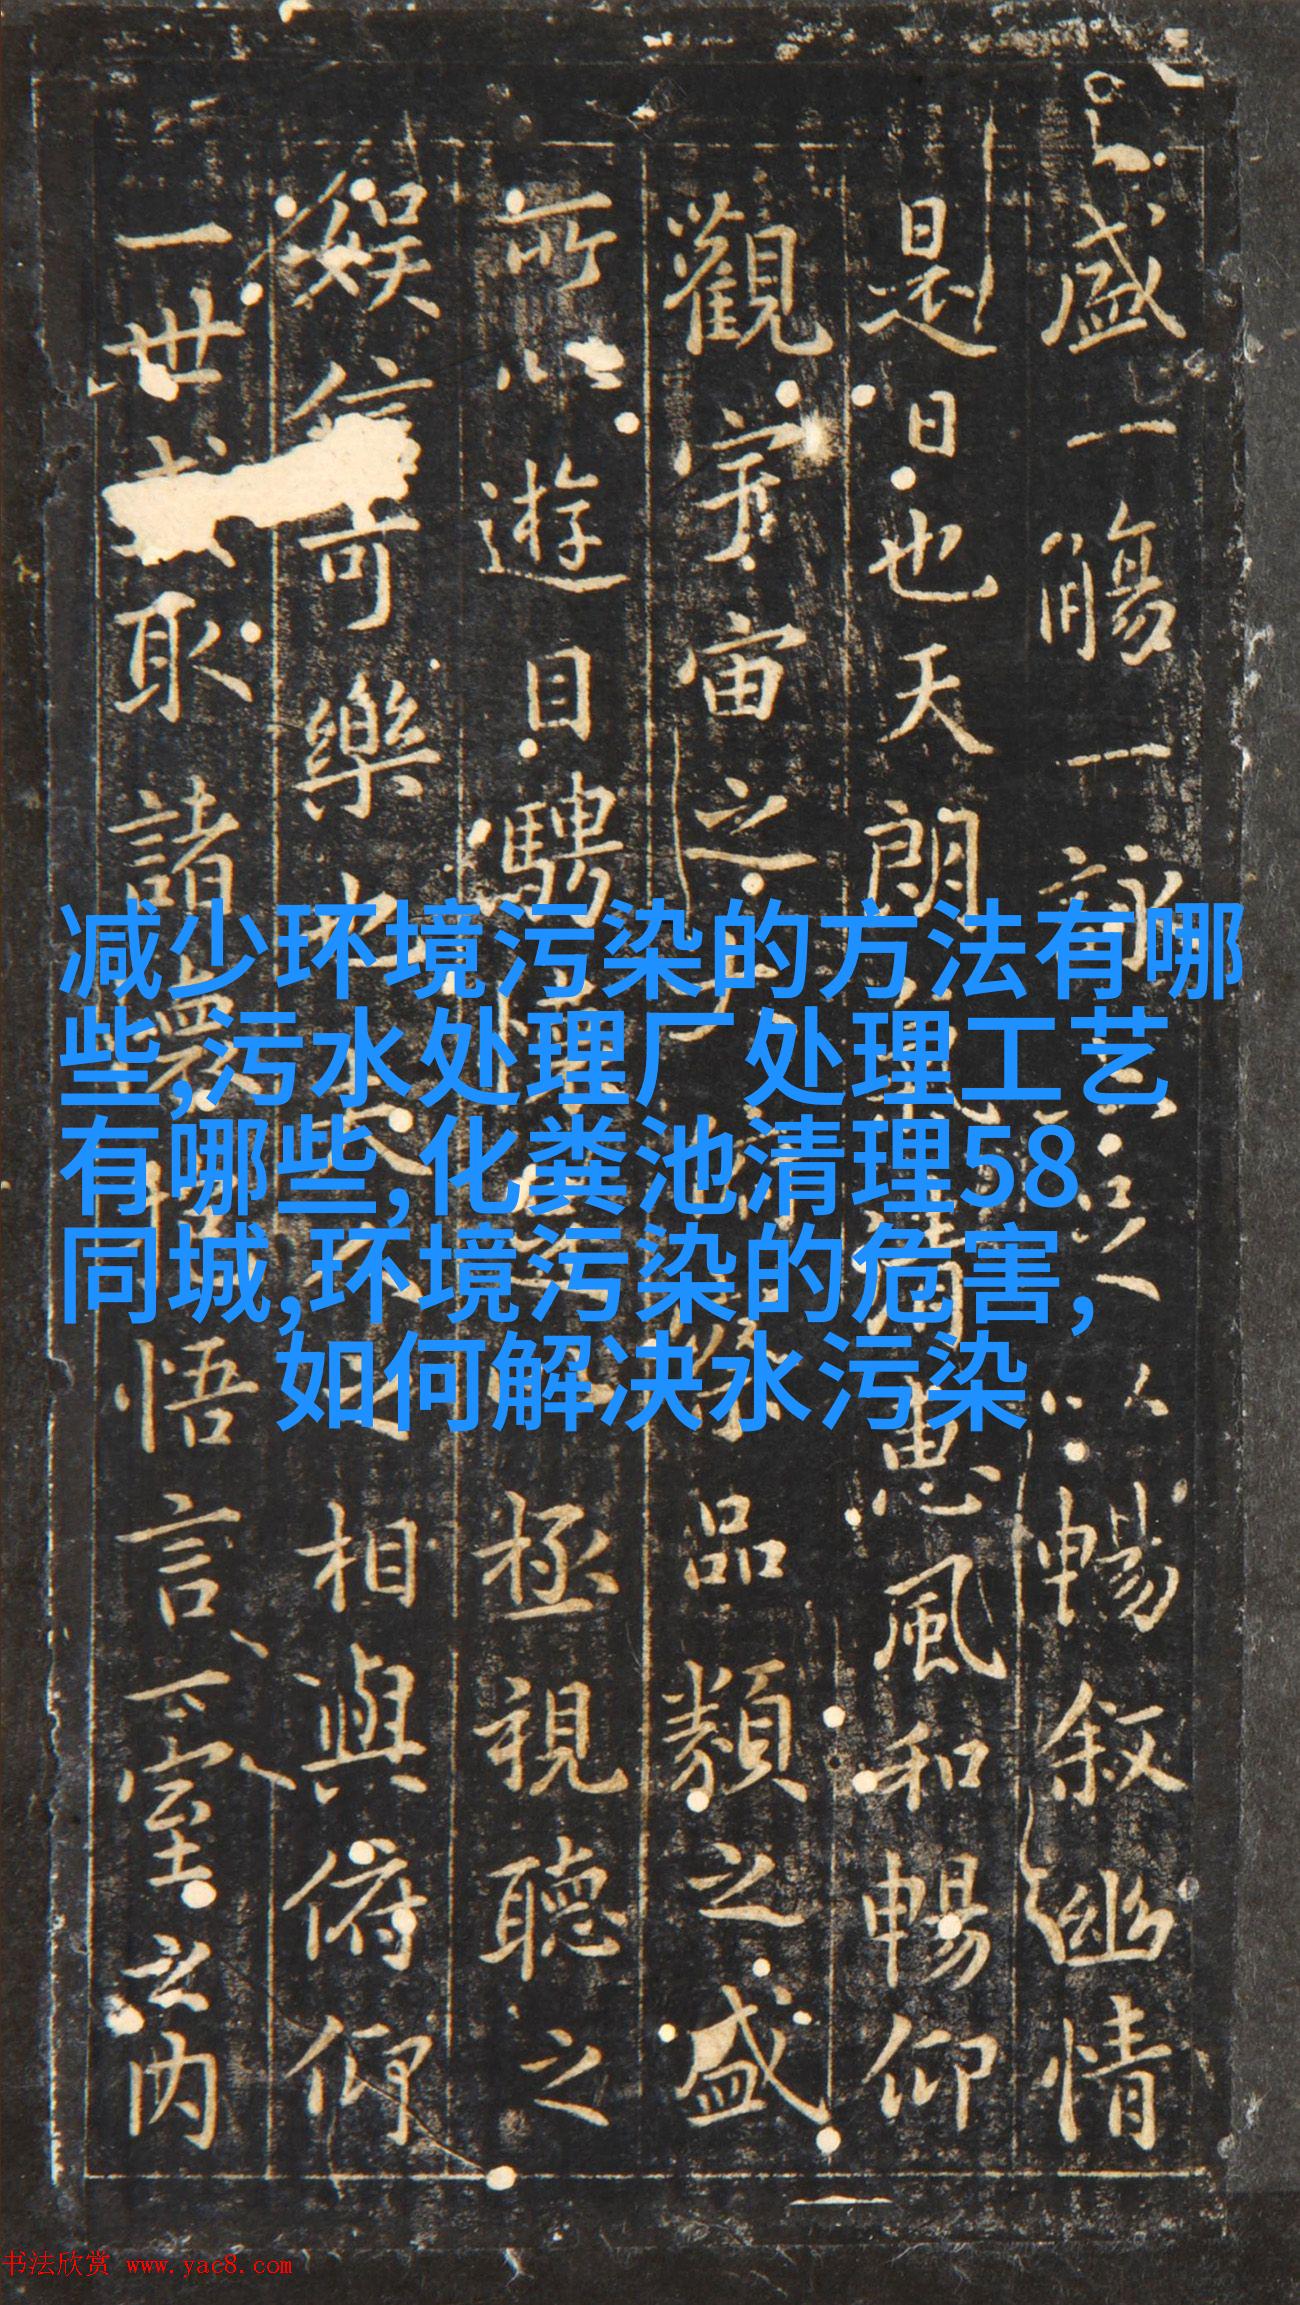 盛一觴一詠亦足以暢叙幽情
是日也天朗氣清惠風和暢仰
觀宇宙之大俯察品類之盛
所以遊目騁懷足以極視聽之
娛信可樂也夫人之相與俯仰
一世或取諸懷抱悟言一室之內
减少环境污染的方法有哪
些,污水处理厂处理工艺
有哪些,化粪池清理58
同城,环境污染的危害,
如何解决水污染
书法欣赏 www.yac8.com